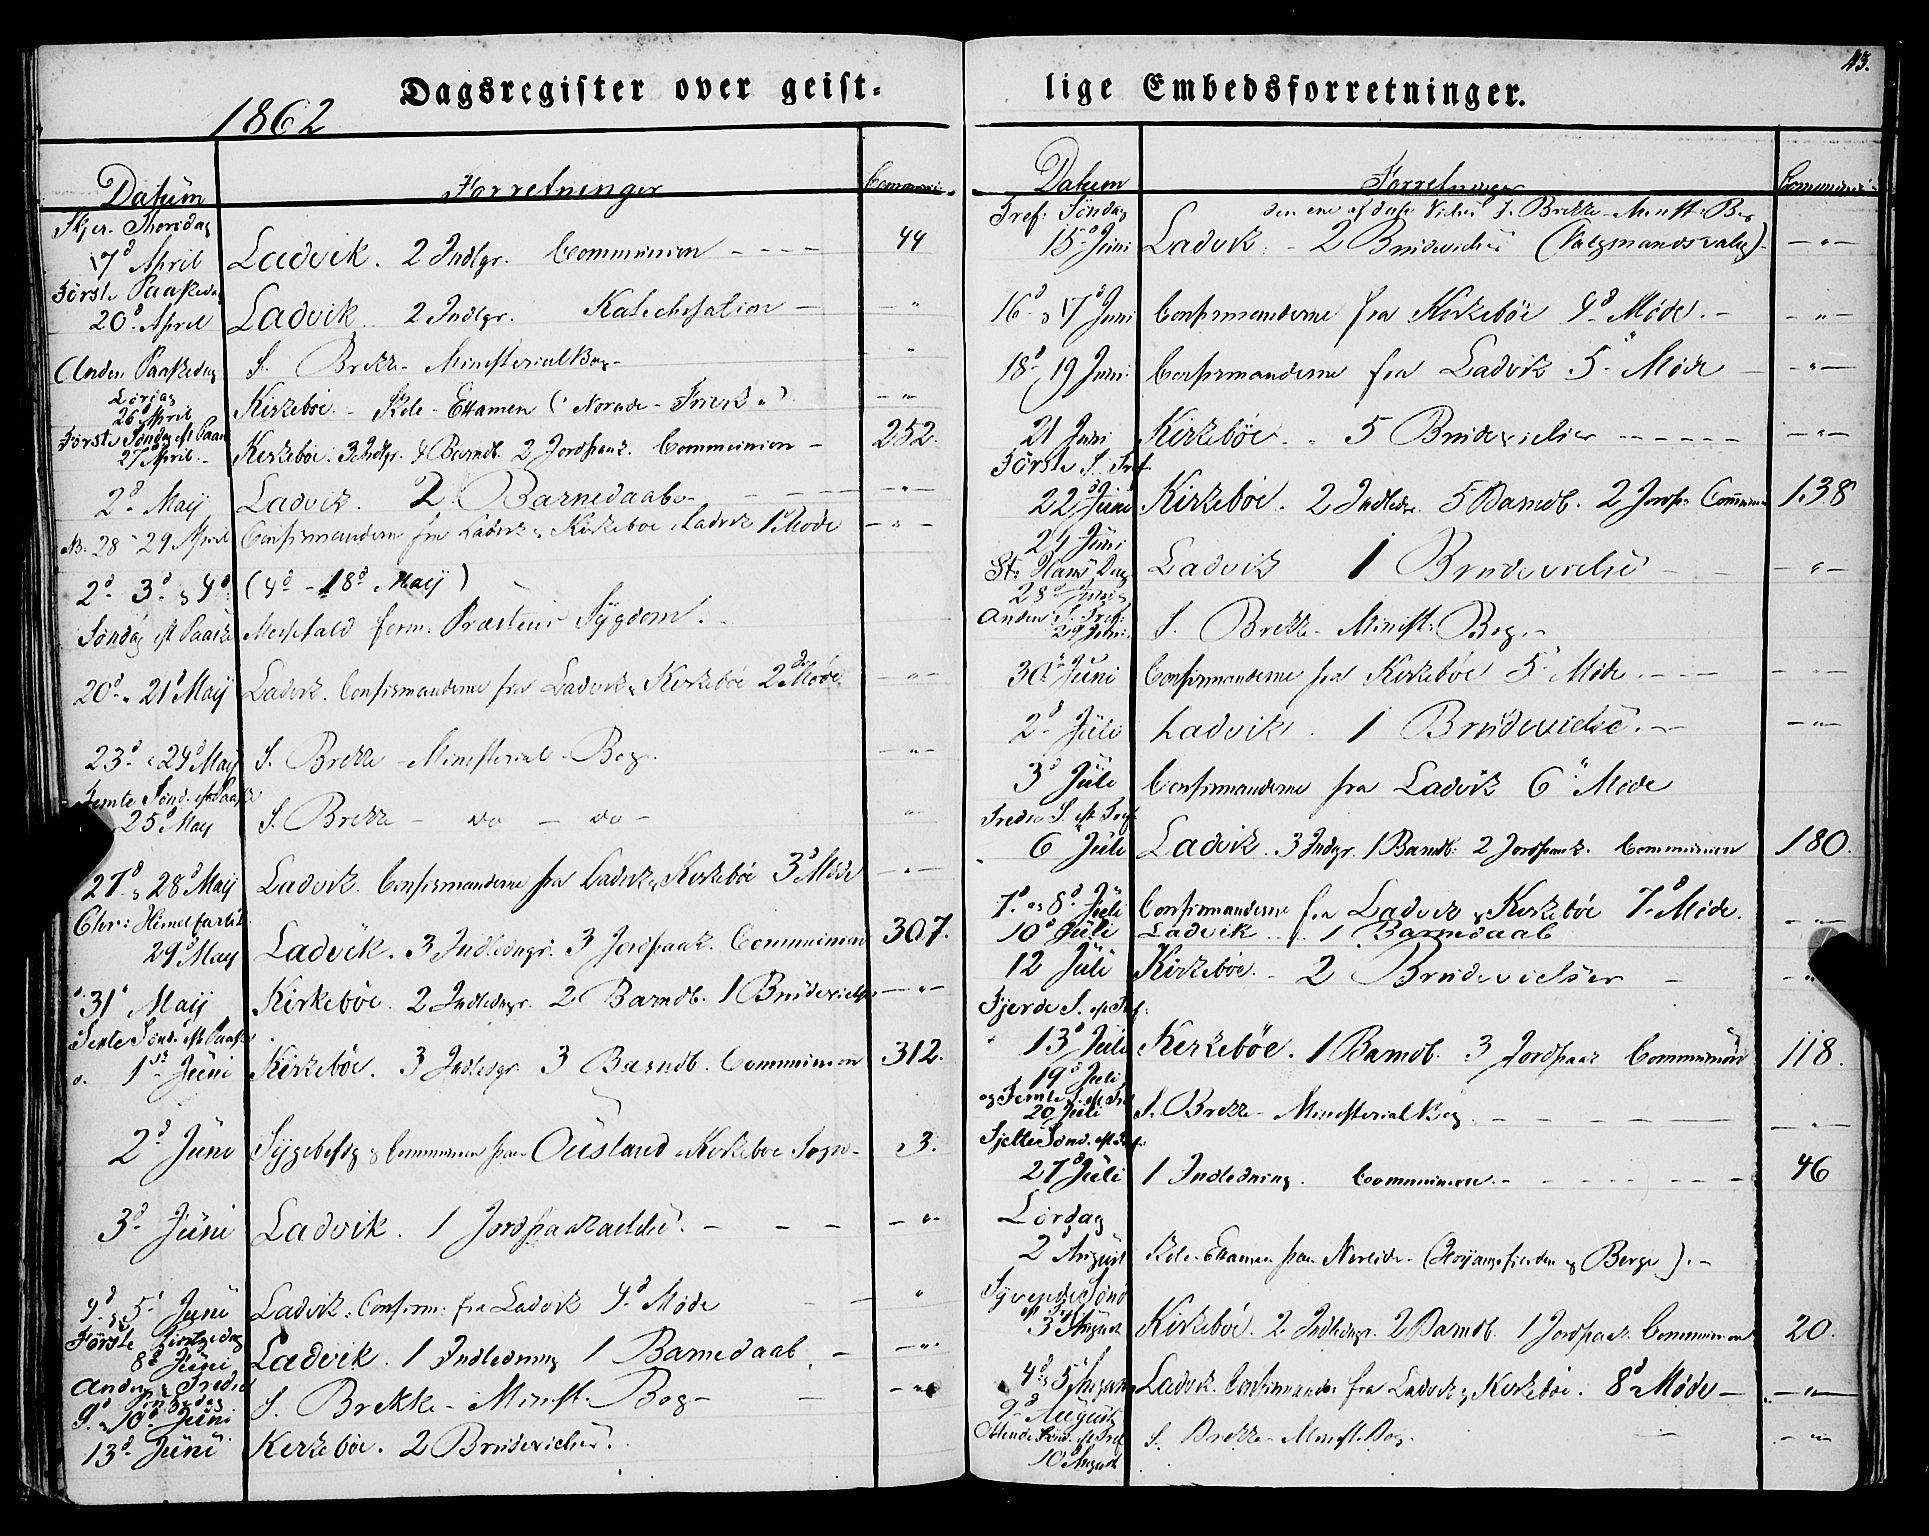 Dagsregister over geist-
1862
Datum Forretninger
Skjer-Thorsdag
17d April Ladvik. 2 Indlgr. Communion - - - - 44
Første Paaskedag
20d April Ladvik. 2 Indlgr. Katechisation - - " -
Anden Paaskedag S. Brekke - Ministerial Bog - "
Lørdag
26d April Kirkebøe. - Skole-Examen (Norade - ) - " -
Første Søndag eft Paaske
27 April Kirkebøe. 3 Indlgr. 4 Barndb. 2 Jordpaak. Communion - 252.
2d Maij Ladvik. 2 Barnedaab - - - - - " -
NB. 28 - 29 April Confirmanderne fra Ladvik & Kirkeboe i Ladvik 1st Møde - " -
2d 3d & 4d (4d - 18d Maij)
Søndag eft Paaske Messefald form. Præstens Sÿgdom.
20d & 21d Maij Ladvik. Confirmanderne fra Ladvik & Kirkebøe 2det Møde. - " -
23d & 24d Maij S. Brekke - Ministerial-Bog. - " -
Femte Sønd. eft Paaske
25d Maij S. Brekke - do - do - - " -
27d & 28d Maij Ladvik. Confirmanderne fra Ladvik & Kirkebøe 3d Møde - " -
Chr: Himmelfartsd.
29d Maij Ladvik. 3 Indledngr. 3 Jordpaak. Communion 307.
31d Maij Kirkebøe. 2 Indledngr. 2 Barndb. 1 Brüdevielse - " -
Sjette Sønd. eft Paaske
1st Jüni Kirkebøe. 3 Indledgr. 3 Barndb. Communion 312.
2d Jüni Sÿgebesøg & Communion paa Oüsland i Kirkeboe Sogn - 3.
3d Jüni Ladvik. 1 Jordpaakastelse. - - - - " -
4d & 5d Jüni Ladvik: Confirm: fra Ladvik 4d Møde - - "
Første Pintsedag
8d Jüni Ladvik. 1 Indledning 1 Barnedaab. - - " -
Anden & Tredie Pintsedag
9d & 10d Jüni S. Brekke - Minist. Bog - - - " -
13d Jüni Kirkebøe. 2 Brüdevielser.
43.
lige Embedsforretninger.
Datum Forretninger
Tref: Søndag den ene af disse Vielser S. Brekke - Minist: Bog
15d Juni Ladvik. - 2 Brudevielser (Valgmandsvalg) - " -
16d & 17d Juni Confirmanderne fra Kirkebøe 4d Møde. - - " -
18d & 19 Juni Confirmanderne fra Ladvik 5d Møde - - " -
21 Juni Kirkebøe. " 5 Brudevielser - - - - - " -
Første S. Tref.
22d Jüni Kirkebøe. 2 Indledn. 5 Barndb. 2 Jordp. Commun 138
24 Jüni
St: Hans Dag Ladvik 1 Brudevielse - " -
28d Juni
Anden S. Tref:
29 Juni S. Brekke - Minist: Bog. -
30d Juni Confirmanderne fra Kirkebøe 5d Møde. - - - - " -
2d Jüli Ladvik. 1 Brüdevielse. - - - " -
3d Jüli Confirmanderne fra Ladvik 6d Møde
Tredie S. eft Tref
6 Jüli Ladvik. 3 Indgr. 1 Barndb. 2 Jordpaak. Communion 180.
7d og 8d Jüli Confirmanderne fra Ladvik & Kirkebøe 7d Møde. - " -
10d Jüli Ladvik . . 1 Barnedaab
12 Jüli Kirkebøe. - 2 Brudevielser - - "
Fjerde S. eft Tref:
13d Jüli Kirkebøe. 1 Barndb. 3 Jordpaak Communion 118.
19d Jüli
og Femte S. eft Tref
20 Jüli S. Brekke - Ministerial Bog - - - - - " -
Sjette Sønd. eft Tref:
27d Jüli 1 Indledning. Communion. - - - - - - 46
Lørdag
2d August Skole-Examen paa Nerlide - (Høyangsfjorden og Berge). -
Syvende Sønd
eft Tref:
3d August Kirkebøe. 2 Indledngr. 2 Barndb. 1 Jordpaak. Communion 20.
4d & 5d August Ladvik. Confirmander fra Ladvik & Kirkebøe. 8d Møde - - " -
9d August
Ottende Sønd. eft Tref
10d August S. Brekke - Minist. Bog. - - " -